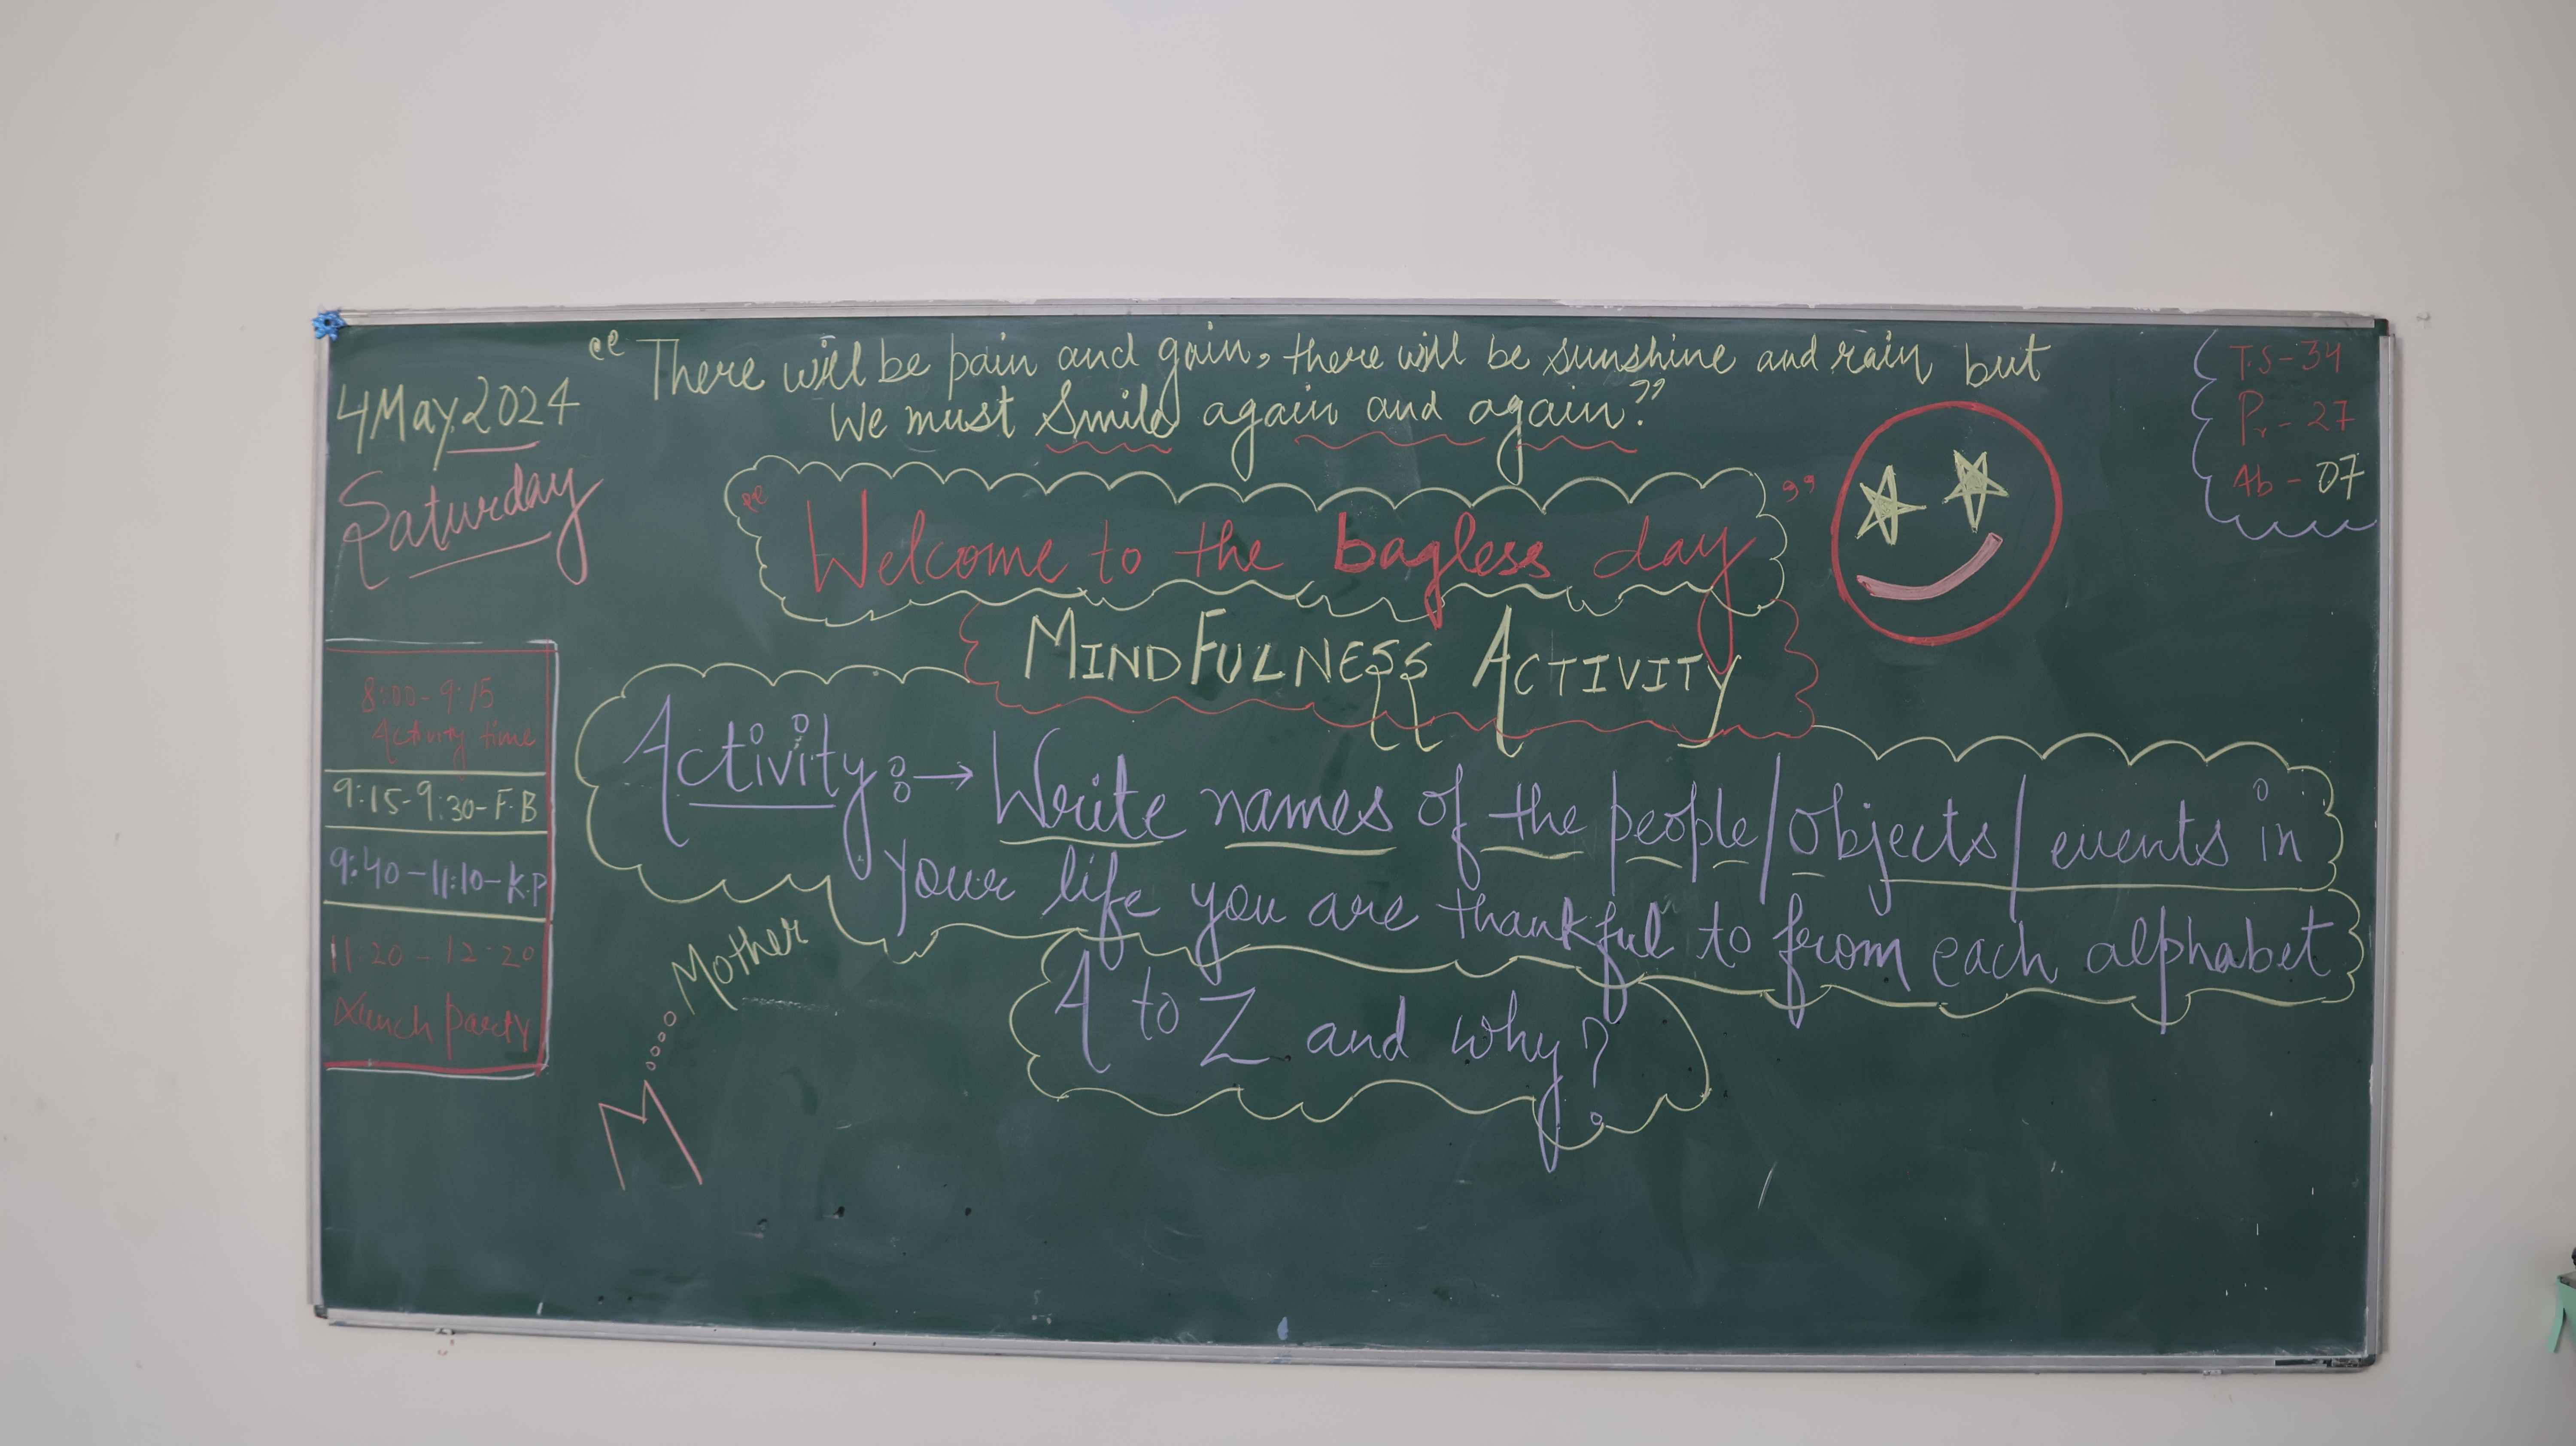 "There will be pain and gain, there will be sunshine and rain but
We must Smile again and again."
4 May, 2024
Saturday
T.S - 34
Pr - 27
Ab - 07
"Welcome to the bagless day"
MINDFULNESS ACTIVITY
8:00 - 9:15
Activity time
9:15 - 9:30 - F.B
9:40 - 11:10 - K.P
11:20 - 12:20
Lunch party
Activity :→ Write names of the people/objects/events in
your life you are thankful to from each alphabet
A to Z and why?
Mother
M